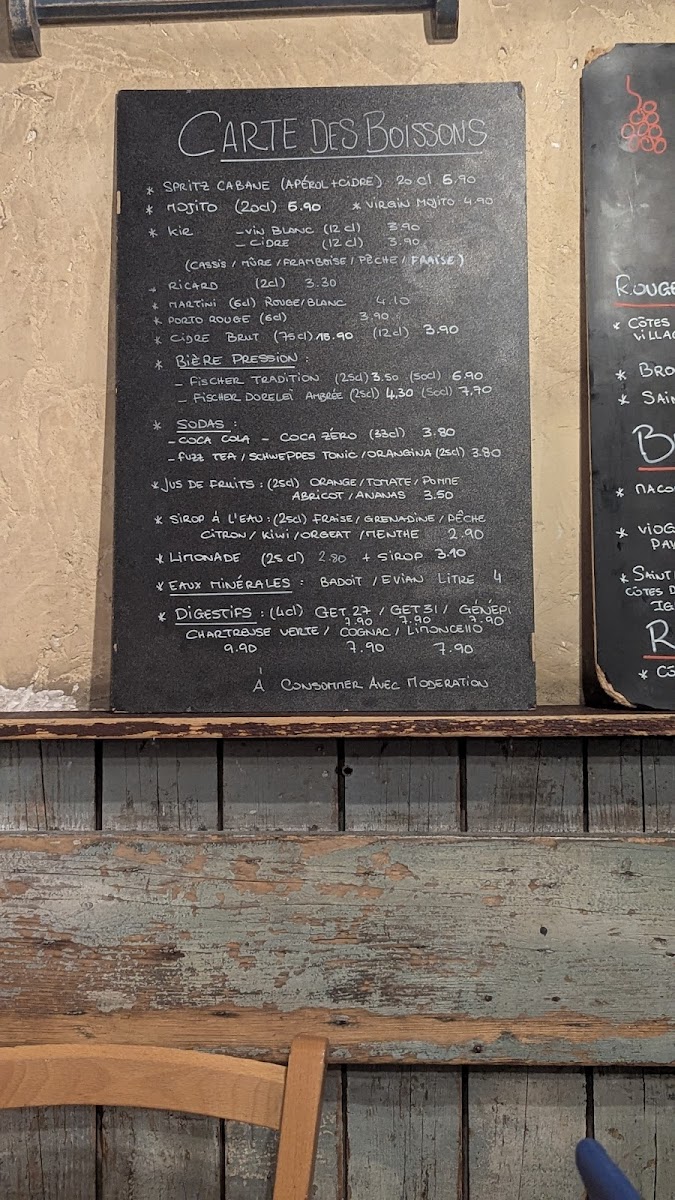 CARTE DES BOISSONS
* SPRITZ CABANE (APÉROL+CIDRE) 20 cl 6.90
* MOJITO (20cl) 6.90 * VIRGIN MOJITO 4.90
* KIR - VIN BLANC (12 cl) 3.90
- CIDRE (12 cl) 3.90
(CASSIS / MÛRE / FRAMBOISE / PÊCHE / FRAISE)
* RICARD (2cl) 3.30
* MARTINI (6cl) ROUGE/BLANC 4.10
* PORTO ROUGE (6cl) 3.90
* CIDRE BRUT (75cl) 15.90 (12cl) 3.90
* BIÈRE PRESSION :
- FISCHER TRADITION (25cl) 3.50 (50cl) 6.90
- FISCHER DORELEÏ AMBRÉE (25cl) 4,30 (50cl) 7,70
* SODAS :
- COCA COLA - COCA ZÉRO (33cl) 3.80
- FUZZ TEA / SCHWEPPES TONIC / ORANGINA (25cl) 3.80
* JUS DE FRUITS : (25cl) ORANGE / TOMATE / POMME
ABRICOT / ANANAS 3.50
* SIROP À L'EAU : (25cl) FRAISE / GRENADINE / PÊCHE
CITRON / KIWI / ORGEAT / MENTHE 2.90
* LIMONADE (25 cl) 2.80 + SIROP 3.10
* EAUX MINÉRALES : BADOIT / EVIAN LITRE 4
* DIGESTIFS : (4cl) GET 27 / GET 31 / GÉNÉPI
7.90 7.90 7.90
CHARTREUSE VERTE / COGNAC / LIMONCELLO
9.90 7.90 7.90
À CONSOMMER AVEC MODERATION
ROUGE
* CÔTES
VILLA
* BRO
* SAIN
B
* MACO
* VIOG
PA
* SAINT
CÔTES D
IG
R
* CÔ